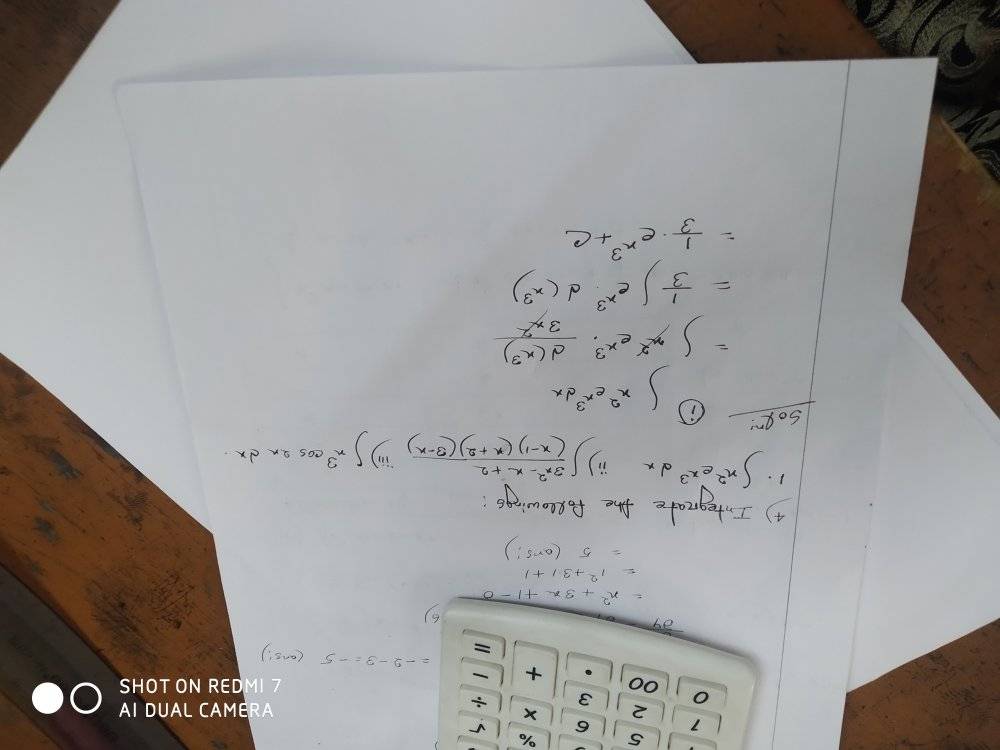 5 %
1 6 √
2 3 × ÷
0 00 . + −
=
SHOT ON REDMI 7
AI DUAL CAMERA
= -2-3 = -5 (ans!)
= x² + 3x + 1 - 0
= 1² + 3.1 + 1
= 5 (ans!)
4) Integrate the followings:
1. ∫x² e^x³ dx ii) ∫ (3x² - x + 2)/((x-1)(x+2)(3-x)) iii) ∫ x³ cos 2x dx.
Solⁿ: (i) ∫ x² e^x³ dx
= ∫ x² e^x³ . d(x³)/3x²
= 1/3 ∫ e^x³ . d(x³)
= 1/3 . e^x³ + C